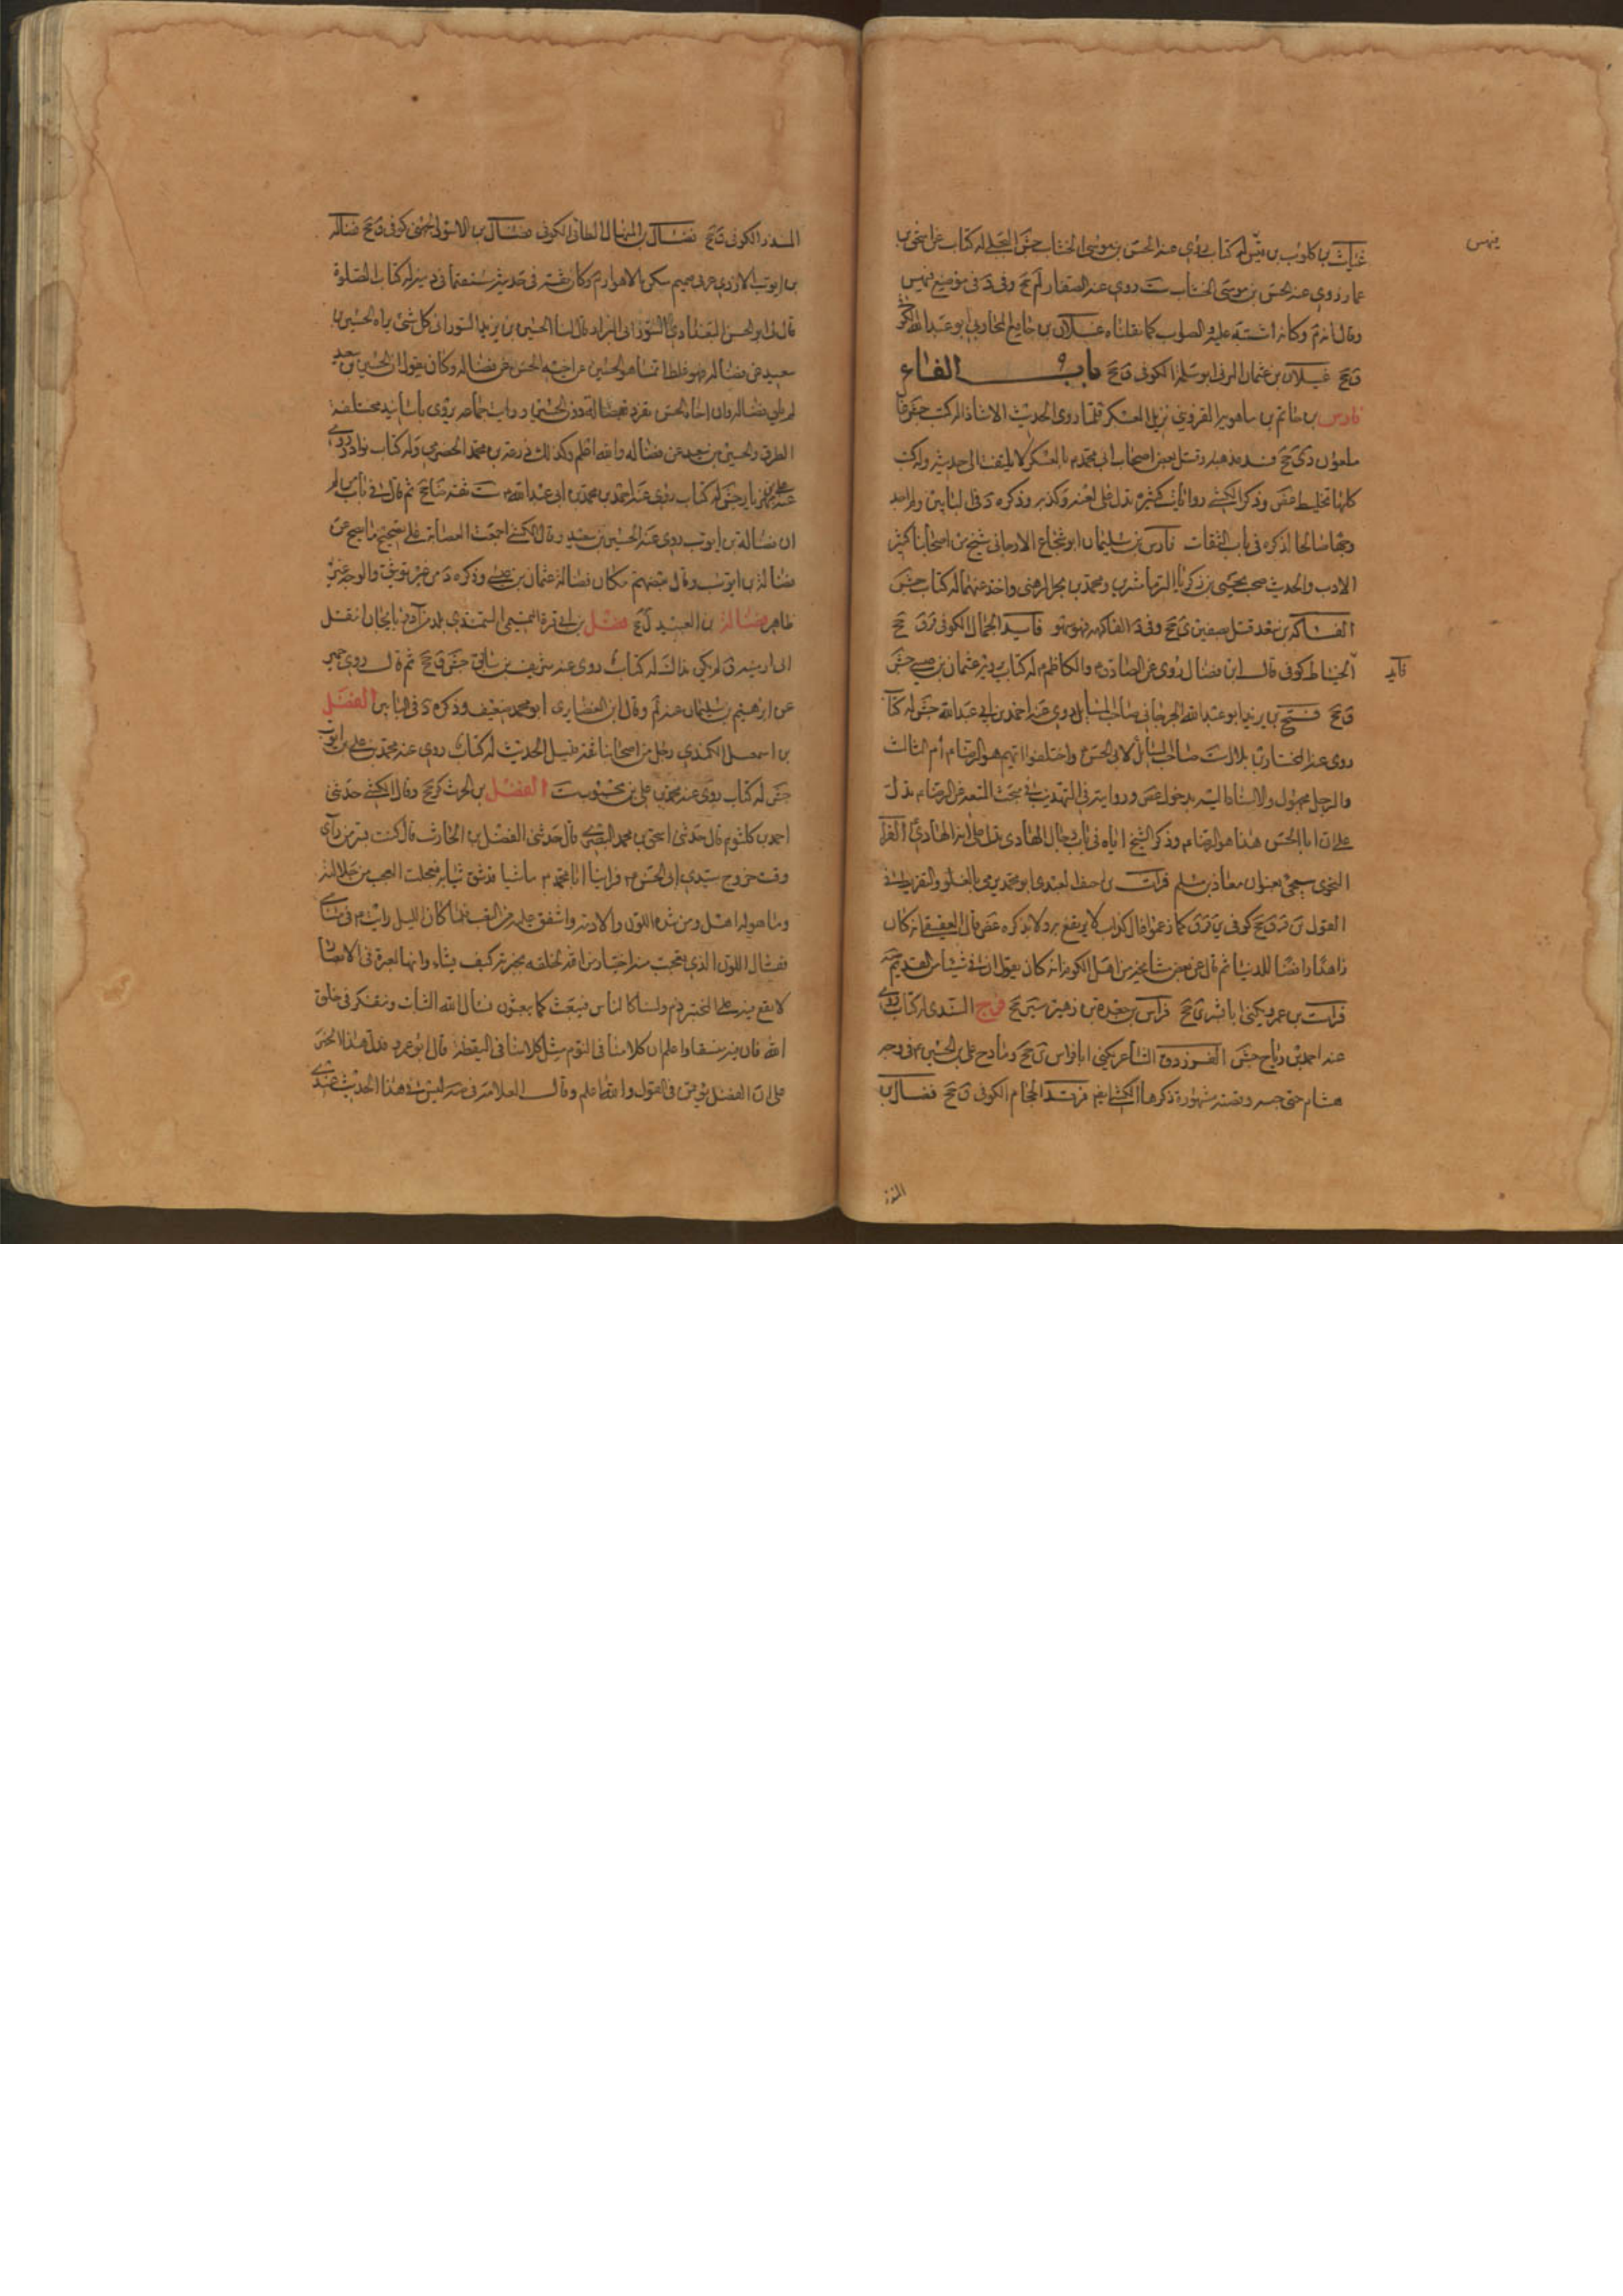 غياث بن كلوب بن فيهس له كتاب روى عنه الحسن بن موسى الخشاب جش البجلي له كتاب عن اسحق بن
فيهس
عمار روى عنه الحسن بن موسى الخشاب ست روى عنه الصفار لم جخ وفي د في موضع فيهس
وقال انه وكانه اشتبه عليه والصواب كما نقلناه غيلان بن جامع المحاربي ابو عبد الله الكو
ق جخ غيلان بن عثمان المزني ابو سلمة الكوفي ق جخ باب الفاء
فارس بن حاتم بن ماهويه القزويني نزيل العسكر قلما روى الحديث الا شاذا له كتب جش
ملعون دي جخ فسد مذهبه وقتله بعض اصحاب ابي محمد م بالعسكر لا يلتفت الى حديثه وله كتب
كلها تخليط غض وذكر الكشي روايات كثيرة تدل على لعنه وكذبه وذكره د في البابين ولم اجد
وجها صالحا لذكره في باب الثقات فارس بن سليمان ابو شجاع الارجاني شيخ من اصحابنا كثير
الادب والحديث صحب يحيى بن زكريا الترماشيري ومحمد بن بحر الرهني واخذ عنهما له كتاب جش
الفاكه بن سعد قتل بصفين ي جخ وفي د الفاكهه فهو سهو فايد الجمال الكوفي ق جخ
فايد
الخياط كوفي قال ابن فضال روى عن الصادق م والكاظم م له كتاب يرويه عثمان بن عيسى جش
ق جخ فتح بن يزيد ابو عبد الله الجرجاني صاحب المسايل روى عنه احمد بن ابي عبد الله جش له كتاب
روى عنه المختار بن بلال ست صاحب المسائل لابي الحسن م واختلفوا ايهم هو الرضا م ام الثالث
والرجل مجهول والاسناد اليه مدخول غض وروايته في التهذيب في مبحث المتعة عن الرضا م تدل
على ان ابا الحسن هذا هو الرضا م وذكر الشيخ اياه في باب رجال الهادي يدل على انه الهادي الفرا
النحوي سيجيء بعنوان معاذ بن مسلم فرات بن احنف العبدي ابو محمد يرمى بالغلو والتفريط في
القول ين ق جخ كوفي كما زعموا قال كذاب لا يرتفع به ولا بذكره غض قال العقيقي انه كان
زاهدا رافضا للدنيا ثم قال عن بعض مشايخه من اهل الكوفة انه كان يقول
فرات بن عمرو يكنى ابا بشر ق جخ فراس بن جعدة بن زهيرة سين جخ فرج السندي له كتاب روى
عنه احمد بن رباح جش الفرزدق الشاعر يكنى ابا فراس ين جخ ومادح علي بن الحسين م في وجه
هشام حتى حبسه وقصته مشهورة ذكرها الكشي فرقد الحجام الكوفي ق جخ فضال بن
المنذر
المنذر الكوفي ق جخ فضال بن المنهال الطائي الكوفي فضال بن الاسود الجهني كوفي ق جخ فضالة
بن ايوب الازدي عربي صميم سكن بالاهواز وكان ثقة في حديثه مستقيما في دينه له كتاب الصلوة
قال لي ابو الحسن البغدادي السوراني البزاز قال لنا الحسين بن يزيد السوراني كل شيء رواه الحسين بن
سعيد عن فضالة فهو غلط انما هو الحسين عن اخيه الحسن عن فضالة وكان يقول ان الحسين بن سعيد
لم يلق فضالة وان اخاه الحسن تفرد بفضالة دون الحسين ورايت الجماعة يروي باسانيد مختلفة
الطرق والحسين بن سعيد عن فضالة والله اعلم وكذلك زرعة بن محمد الحضرمي وله كتاب نوادر روى
عنه علي بن مهزيار جش له كتاب روى عنه احمد بن محمد بن ابي عبد الله ست ثقة ضا جخ ثم قال في باب من لم
ان فضالة بن ايوب روى عنه الحسين بن سعيد وقال الكشي اجمعت العصابة على تصحيح ما يصح عن
فضالة بن ايوب وقال بعضهم مكان فضالة عثمان بن عيسى وذكره د من غير توثيق والوجه غير
ظاهر فضالة بن العبيد ل جخ فضل بن ابي قرة التميمي السهندي بلد من آذربايجان انتقل
الى ارمينية له كتاب روى عنه شريف بن سابق جش ق جخ
عن ابراهيم بن سليمان عنه وقال ابن الغضايري ابو محمد ضعيف وذكره د في البابين الفضل
بن اسمعيل الكندي رجل من اصحابنا ثقة قليل الحديث له كتاب روى عنه محمد بن علي بن ايوب
جش له كتاب روى عنه محمد بن علي بن محبوب ست الفضل بن الحرث كر جخ وقال الكشي حدثني
احمد بن كلثوم قال حدثني اسحق بن محمد البصري قال حدثني الفضل بن الحارث قال كنت بسر من رآى
وقت خروج سيدي ابي الحسن م فراينا ابا محمد م ماشيا قد شق ثيابه فجعلت اتعجب من جلالته
وما هو له اهل ومن شدة اللون والادمة واشفق عليه من التعب فلما كان الليل رايته م في منامي
فقال اللون الذي تعجبت منه اختيار من الله لخلقه يجريه كيف يشاء وانها لعبرة في الابصار
لا يقع فيه على المختبر ذم ولسنا كالناس فنتعب كما يتعبون نسال الله الثبات ونتفكر في خلق
الله فان فيه متسعا واعلم ان كلامنا في النوم مثل كلامنا في اليقظة قال ابو عمرو فدل هذا الخبر
على ان الفضل يؤتمن في القول والله اعلم وقال العلامة في صه ليس في هذا الحديث عندي